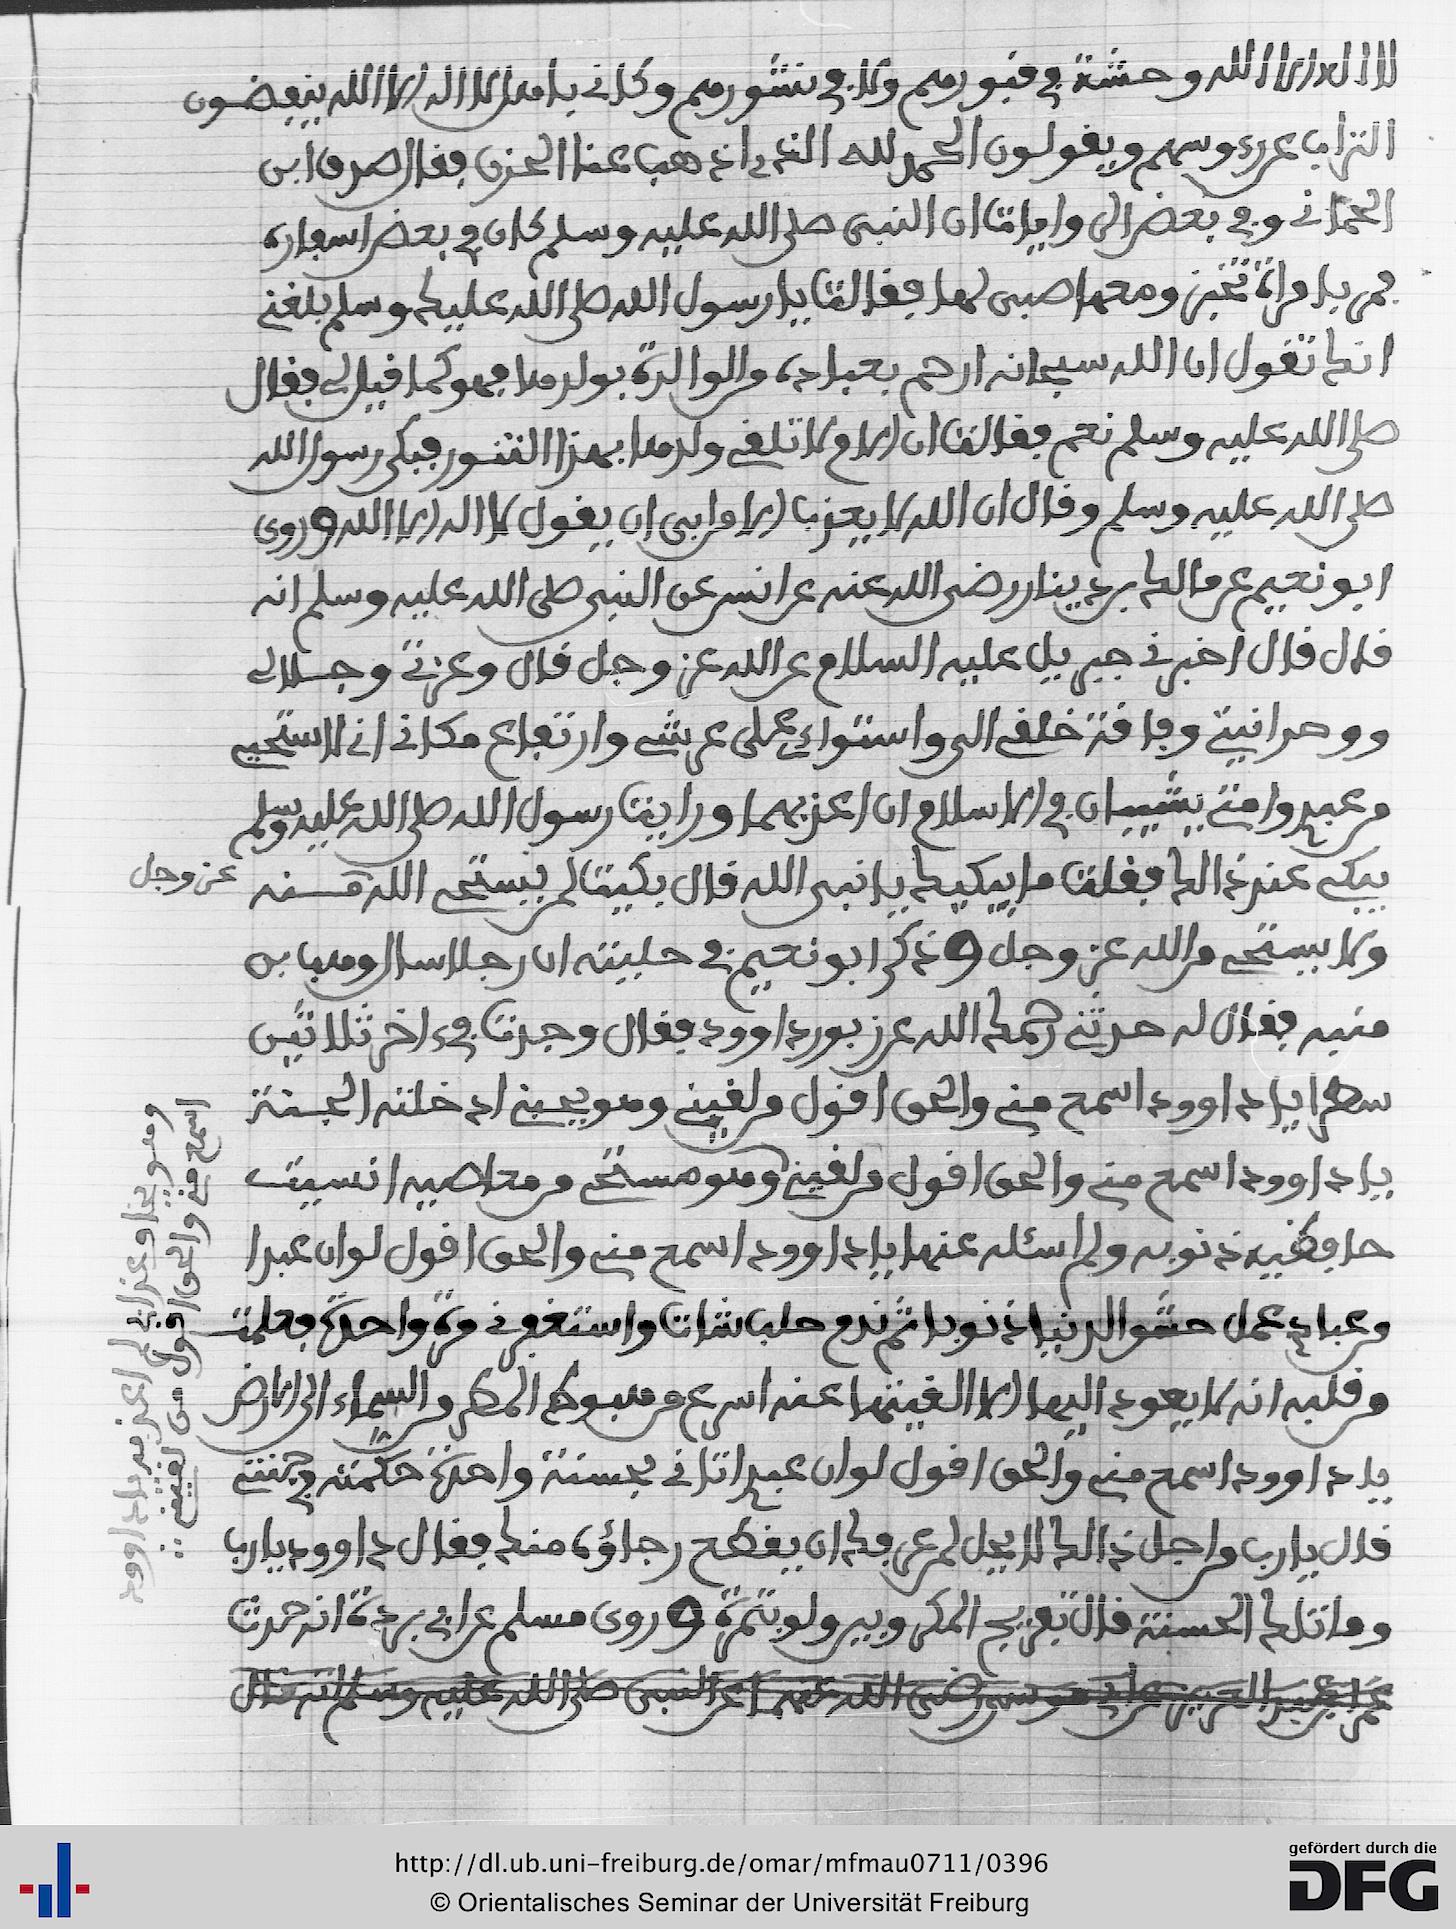 لا اله الا الله وحشة في قبورهم ولا في نشورهم وكاني باهل لا اله الا الله ينفضون
التراب عن رءوسهم ويقولون الحمد لله الذي اذهب عنا الحزن فقال صدق ابن
الحماني وفي بعض الروايات ان النبي صلى الله عليه وسلم كان في بعض اسفاره
فمر بامراة تخبز ومعها صبي لها فقالت يا رسول الله صلى الله عليك وسلم بلغني
انك تقول ان الله سبحانه ارحم بعباده من الوالدة بولدها فهو كما قيل لي فقال
صلى الله عليه وسلم نعم فقالت ان الام لا تلقي ولدها بهذا التنور فبكى رسول الله
صلى الله عليه وسلم وقال ان الله لا يعذب الا من ابى ان يقول لا اله الا الله وروى
ابو نعيم عن مالك بن دينار رضي الله عنه عن انس عن النبي صلى الله عليه وسلم انه
قال قال اخبرني جبريل عليه السلام عن الله عز وجل قال وعزتي وجلالي
ووحدانيتي وفاقة خلقي الي واستوائي على عرشي وارتفاع مكاني اني لاستحيي
من عبدي وامتي يشيبان في الاسلام ان اعذبهما ورايت رسول الله صلى الله عليه وسلم
يبكي عند ذالك فقلت ما يبكيك يا نبي الله قال بكيت لمن يستحي الله منه
عز وجل
ولا يستحي من الله عز وجل وذكر ابو نعيم في حليته ان رجلا سال وهب بن
منبه فقال له حدثني رحمك الله عن زبور داوود فقال وجدت في ءاخر ثلاثين
سطرا يا داوود اسمع مني والحق اقول من لقيني وهو يحبني ادخلته الجنة
يا داوود اسمع مني والحق اقول من لقيني وهو مستحي من معاصيه انسيت
حافظيه ذنوبه ولم اسئله عنها يا داوود اسمع مني والحق اقول لو ان عبدا
من عبادي عمل حشو الدنيا ذنوبا ثم ندم حلب شات واستغفرني مرة واحدة فعلمت
من قلبه انه لا يعود اليها الا القيتها عنه اسرع من هبوط المطر من السماء الى الارض
يا داوود اسمع مني والحق اقول لو ان عبدا اتاني بحسنة واحدة حكمته في جنتي
قال يا رب من اجل ذالك لا يحل لمن عرفك ان يقطع رجاؤه منك فقال داوود يا رب
وما تلك الحسنة قال تفريج المكروب ولو بتمرة وروى مسلم عن ابي بردة انه حدث
عمر بن عبد العزيز عن ابي موسى رضي الله عنهما عن النبي صلى الله عليه وسلم انه قال
اسمع مني والحق اقول من لقيني
وهو يخاف عذابي لم اعذبه يا داوود
http://dl.ub.uni-freiburg.de/omar/mfmau0711/0396
© Orientalisches Seminar der Universität Freiburg
gefördert durch die
DFG